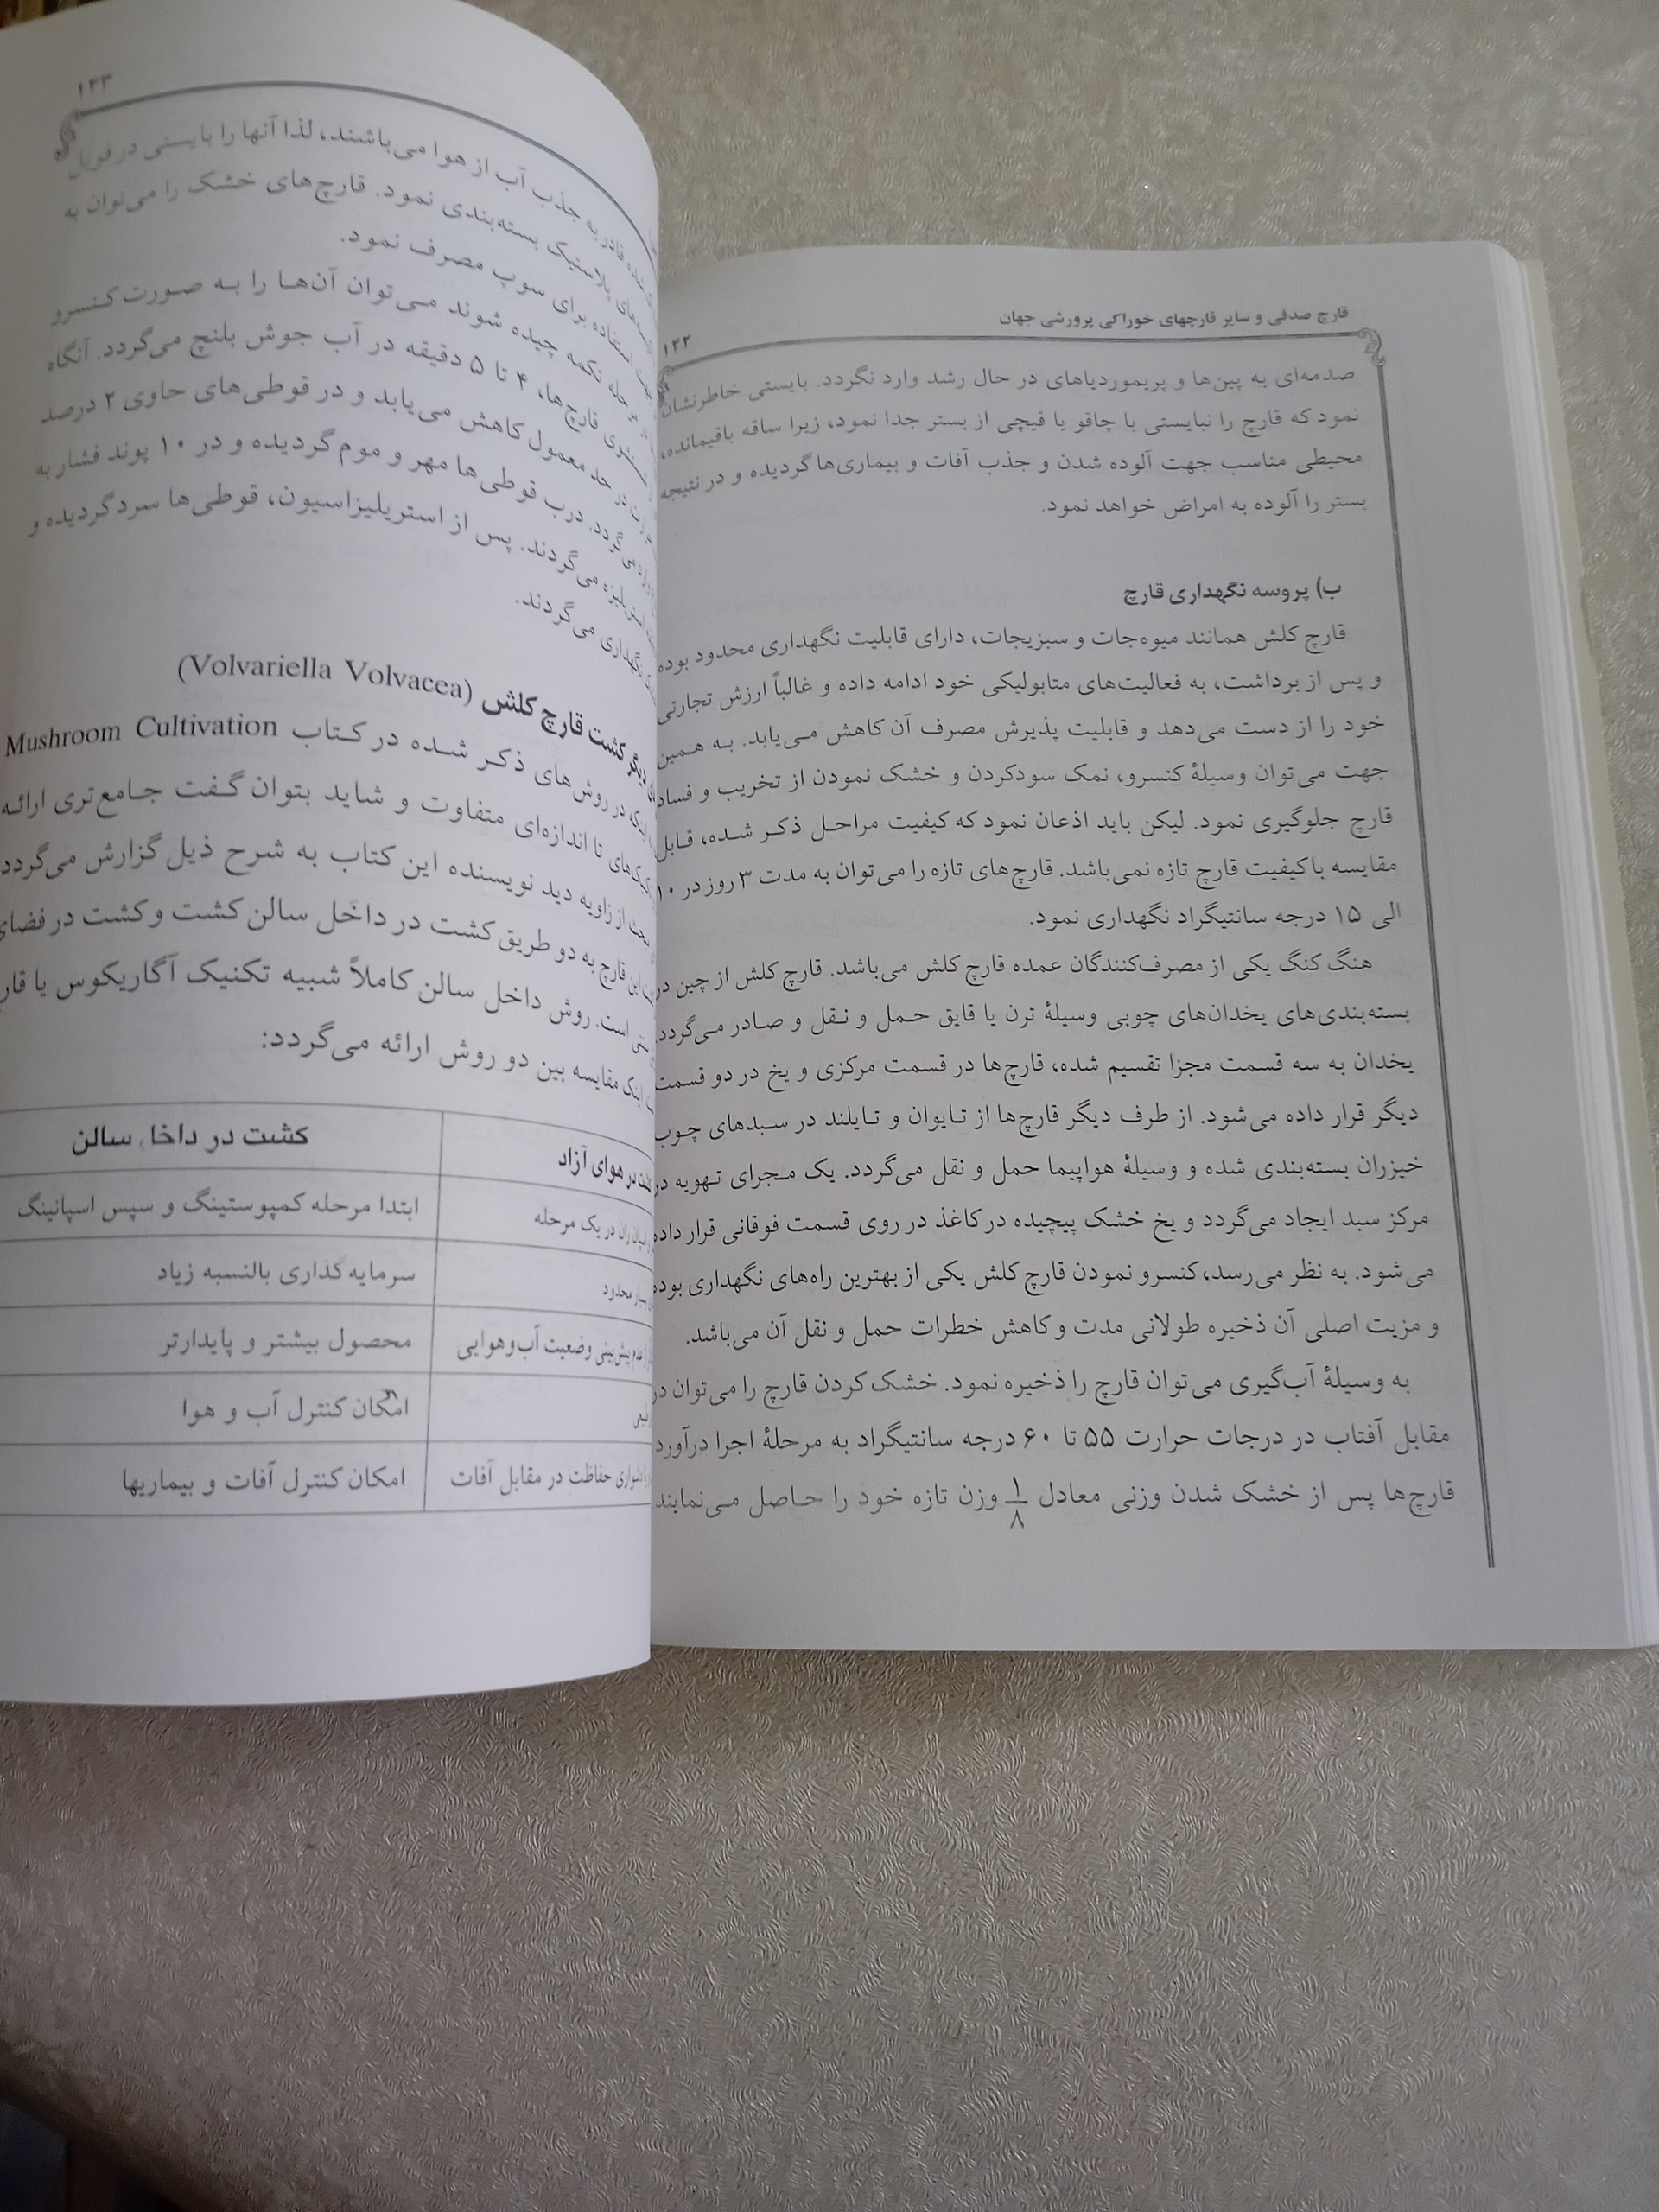 قارچ صدفی و سایر قارچهای خوراکی پرورشی جهان
۱۲۲
صدمه‌ای به پین‌ها و پریموردیاهای در حال رشد وارد نگردد. بایستی خاطرنشان
نمود که قارچ را نبایستی با چاقو یا قیچی از بستر جدا نمود، زیرا ساقه باقیمانده،
محیطی مناسب جهت آلوده شدن و جذب آفات و بیماری‌ها گردیده و در نتیجه
بستر را آلوده به امراض خواهد نمود.
ب) پروسه نگهداری قارچ
قارچ کلش همانند میوه‌جات و سبزیجات، دارای قابلیت نگهداری محدود بوده
و پس از برداشت، به فعالیت‌های متابولیکی خود ادامه داده و غالباً ارزش تجارتی
خود را از دست می‌دهد و قابلیت پذیرش مصرف آن کاهش می‌یابد. به همین
جهت می‌توان وسیلهٔ کنسرو، نمک سودکردن و خشک نمودن از تخریب و فساد
قارچ جلوگیری نمود. لیکن باید اذعان نمود که کیفیت مراحل ذکر شده، قابل
مقایسه با کیفیت قارچ تازه نمی‌باشد. قارچ‌های تازه را می‌توان به مدت ۳ روز در ۱۰
الی ۱۵ درجه سانتیگراد نگهداری نمود.
هنگ کنگ یکی از مصرف‌کنندگان عمده قارچ کلش می‌باشد. قارچ کلش از چین در
بسته‌بندی‌های یخدان‌های چوبی وسیلهٔ ترن یا قایق حمل و نقل و صادر می‌گردد.
یخدان به سه قسمت مجزا تقسیم شده، قارچ‌ها در قسمت مرکزی و یخ در دو قسمت
دیگر قرار داده می‌شود. از طرف دیگر قارچ‌ها از تایوان و تایلند در سبدهای چوب
خیزران بسته‌بندی شده و وسیلهٔ هواپیما حمل و نقل می‌گردد. یک مجرای تهویه در
مرکز سبد ایجاد می‌گردد و یخ خشک پیچیده در کاغذ در روی قسمت فوقانی قرار داده
می‌شود. به نظر می‌رسد، کنسرو نمودن قارچ کلش یکی از بهترین راه‌های نگهداری بوده
و مزیت اصلی آن ذخیره طولانی مدت و کاهش خطرات حمل و نقل آن می‌باشد.
به وسیلهٔ آب‌گیری می‌توان قارچ را ذخیره نمود. خشک کردن قارچ را می‌توان در
مقابل آفتاب در درجات حرارت ۵۵ تا ۶۰ درجه سانتیگراد به مرحلهٔ اجرا درآورد
قارچ‌ها پس از خشک شدن وزنی معادل ۱/۸ وزن تازه خود را حاصل می‌نمایند
۱۲۳
قادر به جذب آب از هوا می‌باشند، لذا آنها را بایستی در فویل
پلاستیک بسته‌بندی نمود. قارچ‌های خشک را می‌توان به
استفاده برای سوپ مصرف نمود.
تکمه چیده شوند می‌توان آن‌ها را به صورت کنسرو
قارچ‌ها، ۴ تا ۵ دقیقه در آب جوش بلنچ می‌گردد. آنگاه
در حد معمول کاهش می‌یابد و در قوطی‌های حاوی ۲ درصد
می‌گردد. درب قوطی‌ها مهر و موم گردیده و در ۱۰ پوند فشار به
استریلیزه می‌گردند. پس از استریلیزاسیون، قوطی‌ها سرد گردیده و
نگهداری می‌گردند.
دیگر کشت قارچ کلش (Volvariella Volvacea)
در روش‌های ذکر شده در کتاب Mushroom Cultivation
تا اندازه‌ای متفاوت و شاید بتوان گفت جامع‌تری ارائه
از زاویه دید نویسنده این کتاب به شرح ذیل گزارش می‌گردد
این قارچ به دو طریق کشت در داخل سالن کشت و کشت در فضای
است. روش داخل سالن کاملاً شبیه تکنیک آگاریکوس یا قارچ
اینک مقایسه بین دو روش ارائه می‌گردد:
در هوای آزاد کشت در داخل سالن
در یک مرحله ابتدا مرحله کمپوستینگ و سپس اسپانینگ
محدود سرمایه‌گذاری بالنسبه زیاد
عدم پیش‌بینی وضعیت آب‌وهوایی محصول بیشتر و پایدارتر
امکان کنترل آب و هوا
حفاظت در مقابل آفات امکان کنترل آفات و بیماریها